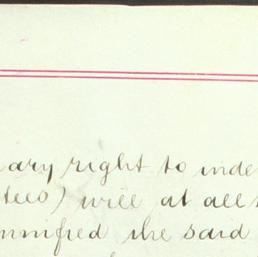 ary right to inde
tees) will at all
mnified the said